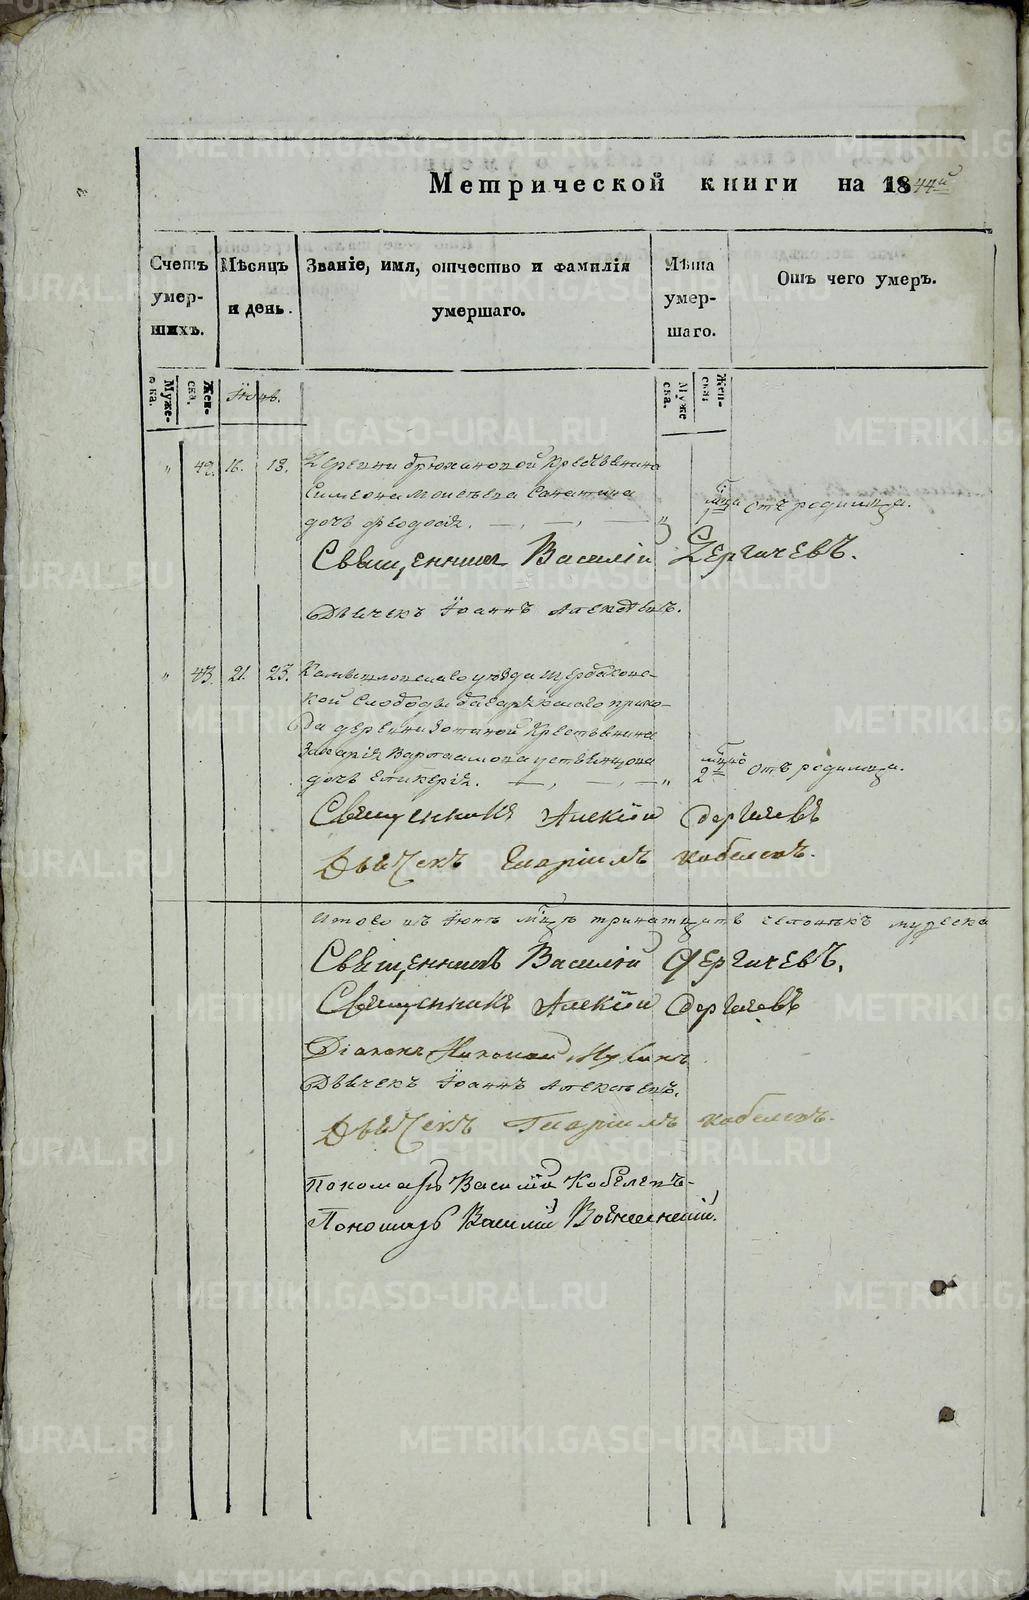 Метрической книги на 1844й
Счетъ умер- шихъ.
Мѣсяцъ и день.
Званіе, имя, отчество и фамилія умершаго.
Лѣта умер- шаго.
Отъ чего умеръ.
Муже- ска.
Жен- ска.
Іюнь.
Муже ска.
Жен- ска.
" 42. 16. 18. Деревни Крестьянина
Симеона Моисѣева
дочь Феодосія.
отъ родимца.
Священникъ Василій Дергачевъ.
Дьячекъ Іоаннъ
" 43. 21. 23. Камышловскаго уѣзда Щербаков-
ской Слободы прихо-
да деревни Зотиной Крестьянина
Захарія Варлаамова Устьянцова
дочь Гликерія.
2 отъ родимца.
Священникъ Алексій Дергачевъ
Дьячекъ Кобелевъ.
Итого въ Іюнѣ мцѣ тринатцать человѣкъ мужеска
Священникъ Василій Дергачевъ.
Священникъ Алексій Дергачевъ
Діаконъ Николай
Дьячекъ Іоаннъ
Дьячекъ Кобелевъ.
Пономарь Василій Кобелевъ
Пономарь Василій Вознесенскій.
METRIKI.GASO-URAL.RU